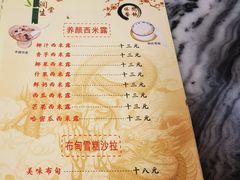 养颜西米露
椰汁西米露 十三元
香芋西米露 十三元
椰果西米露 十三元
什果西米露 十三元
西瓜西米露 十三元
芒果西米露 十三元
哈密瓜西米露 十三元
布甸雪糕沙拉
美味布甸 十八元